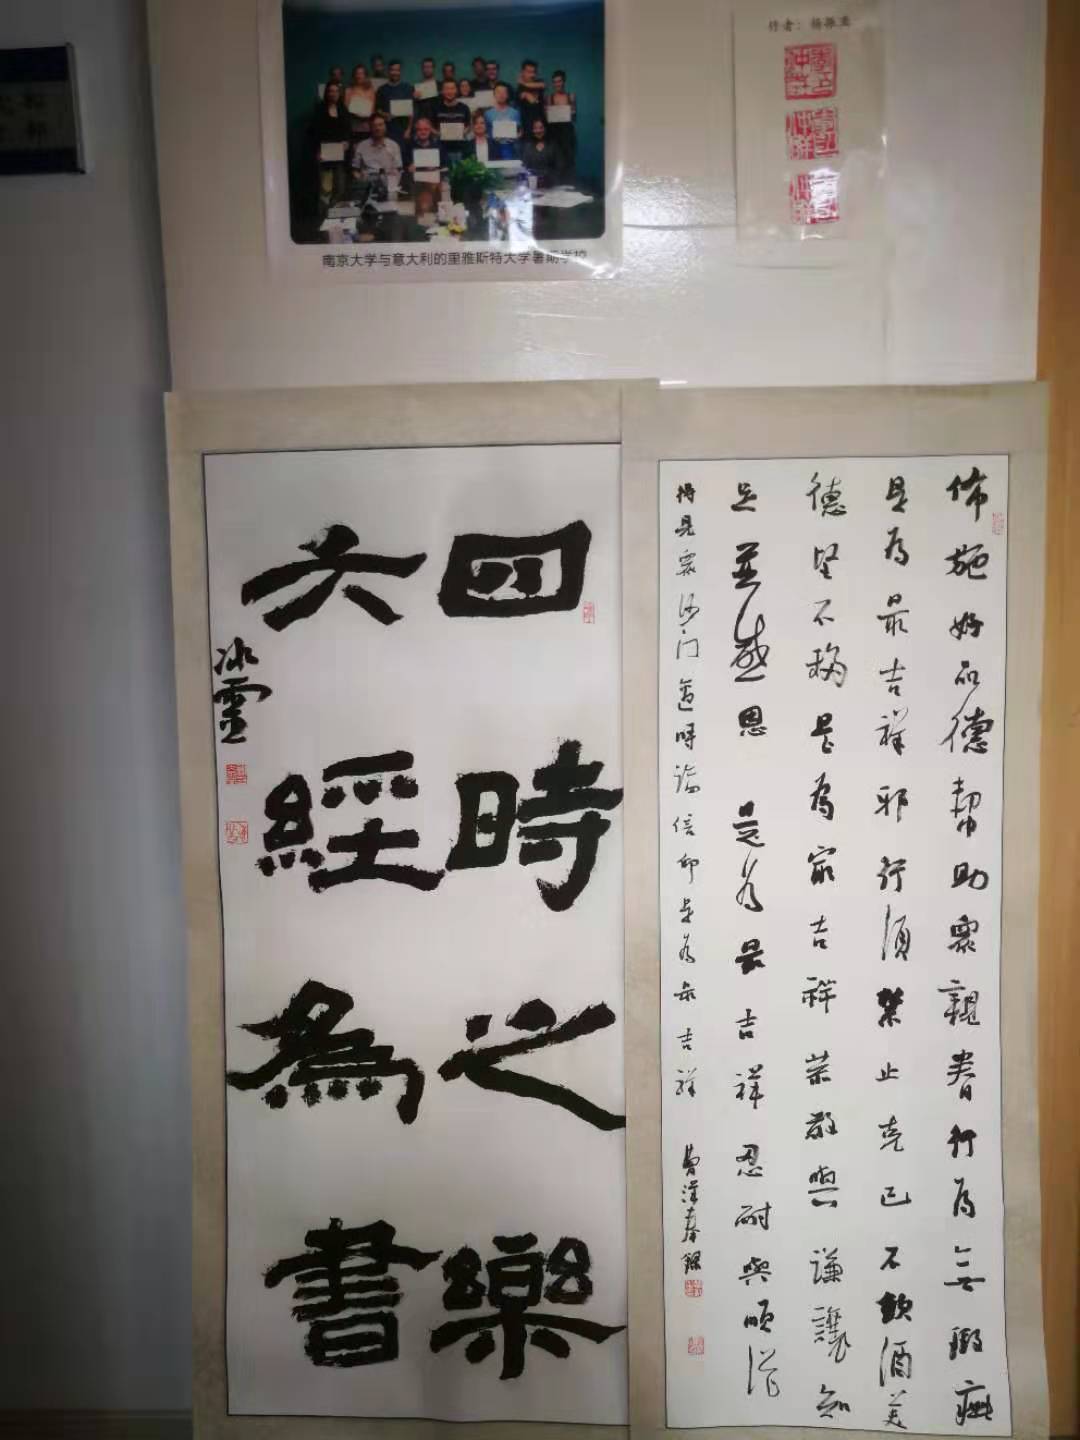 作者：杨振亚
南京大学与意大利的里雅斯特大学暑期学校
四時之樂
六經為書
冰雪
佈施好品德幫助眾親眷行為無瑕疵
是為最吉祥邪行須禁止克己不飲酒美
德堅不移是為最吉祥恭敬與謙讓知
足並感恩是為最吉祥忍耐與順從
得見眾沙门適時論信仰是為最吉祥